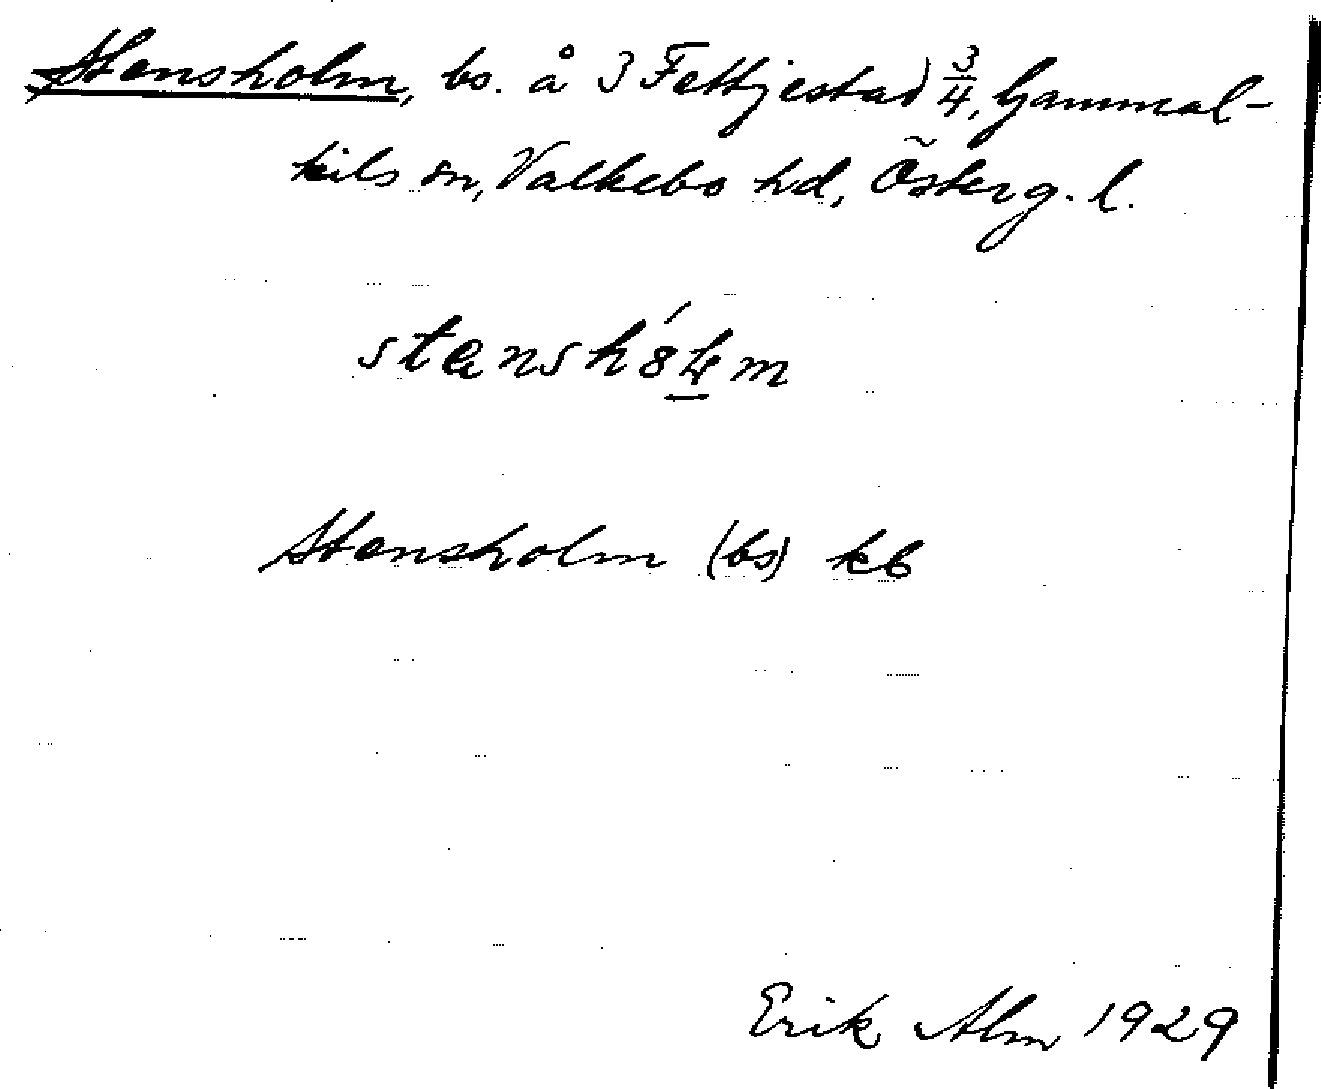 Stensholm, bs. å 3 Fettjestad 3/4, Gammal-
kils sn, Valkebo hd, Österg. l.
Stensholm (bs) kb
Erik Alm 1929